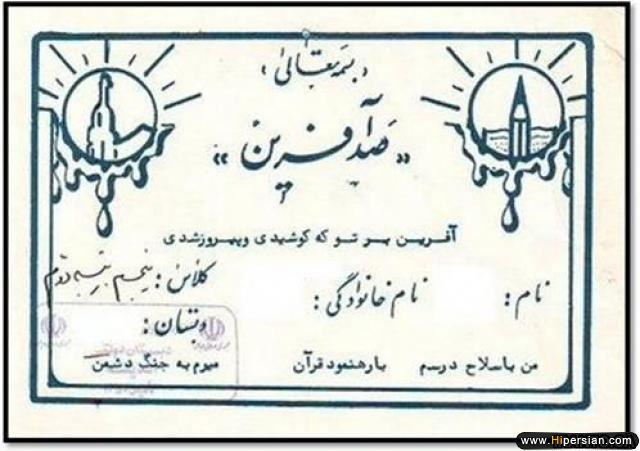 «بسمه تعالی»
«صد آفرین»
آفرین بر تو که کوشیدی و پیروز شدی
نام: نام خانوادگی: کلاس: پنجم
دبستان:
من با سلاح درسم با رهنمود قرآن میرم به جنگ دشمن
www.Hipersian.com